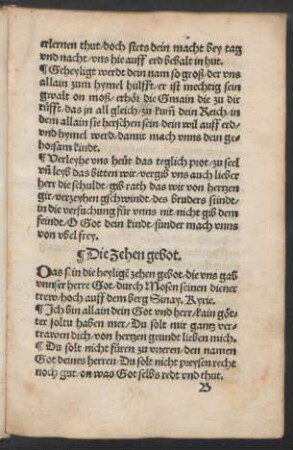 erlernen thut/doch stets dein macht bey tag
vnd nacht/vns hie auff erd behalt in hut.
¶Geheyligt werdt dein nam so groß/der vns
allain zum hymel hülfft/er ist mechtig sein
gwalt on moß/erhöt die Gmain die zu dir
rüfft/das jn all gleich/zu kum̃ dein Reich/in
dem allain sie herschen sein/dein wil auff erd/
vnd hymel werd/damit mach vnns dein ge-
horsam kinde.
¶Verleyhe vns heüt das teglich prot/zu seel
vn̄ leyb das bitten wir/vergib vns auch lieber
herr die schuldt/gib rath das wir von hertzen
gir/verzeyhen gschwindt/des bruders sündt/
in die versuchung für vnns nit/nicht gib dem
feindt/O Got dein kindt/sunder mach vnns
von vbel frey.
¶Die Zehen gebot.
Das sin die heylige zehen gebot/die vns gab
vnnser herre Got/durch Mosen seinen diener
trew/hoch auff dem berg Sinay. Kyric.
¶Ich bin allain dein Got vnd herr/kain göt-
ter soltu haben mer/Du solt mir gantz ver-
trawen dich/von hertzen grundt lieben mich.
¶Du solt nicht füren zu vneren/den namen
Got deines herren/Du solt nicht preysen recht
noch gut/on was Got selbs redt vnd thut.
B